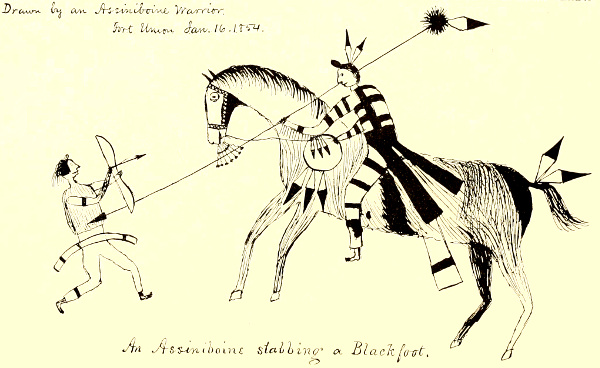 Drawn by an Assiniboine Warrior.
Fort Union Jan. 16. 1854.
An Assiniboine stabbing a Blackfoot.